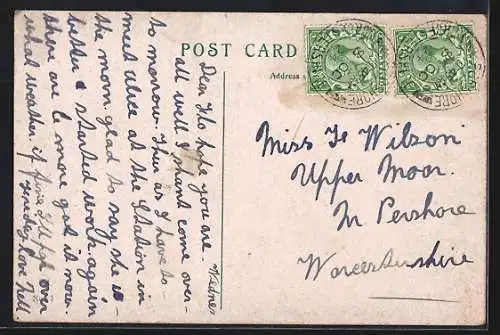 POST CARD
Address
Wednes
Dear Flo hope you are
all well I shant come over
to morrow. Then as I have to-
meet alice at the Station in
the morn, glad to say she is
better & started work again
there are lo more got it now.
what weather if fine I'll pop over
Love Nell.
Miss F. Wilson
Upper Moor.
Nr Pershore
Worcestershire